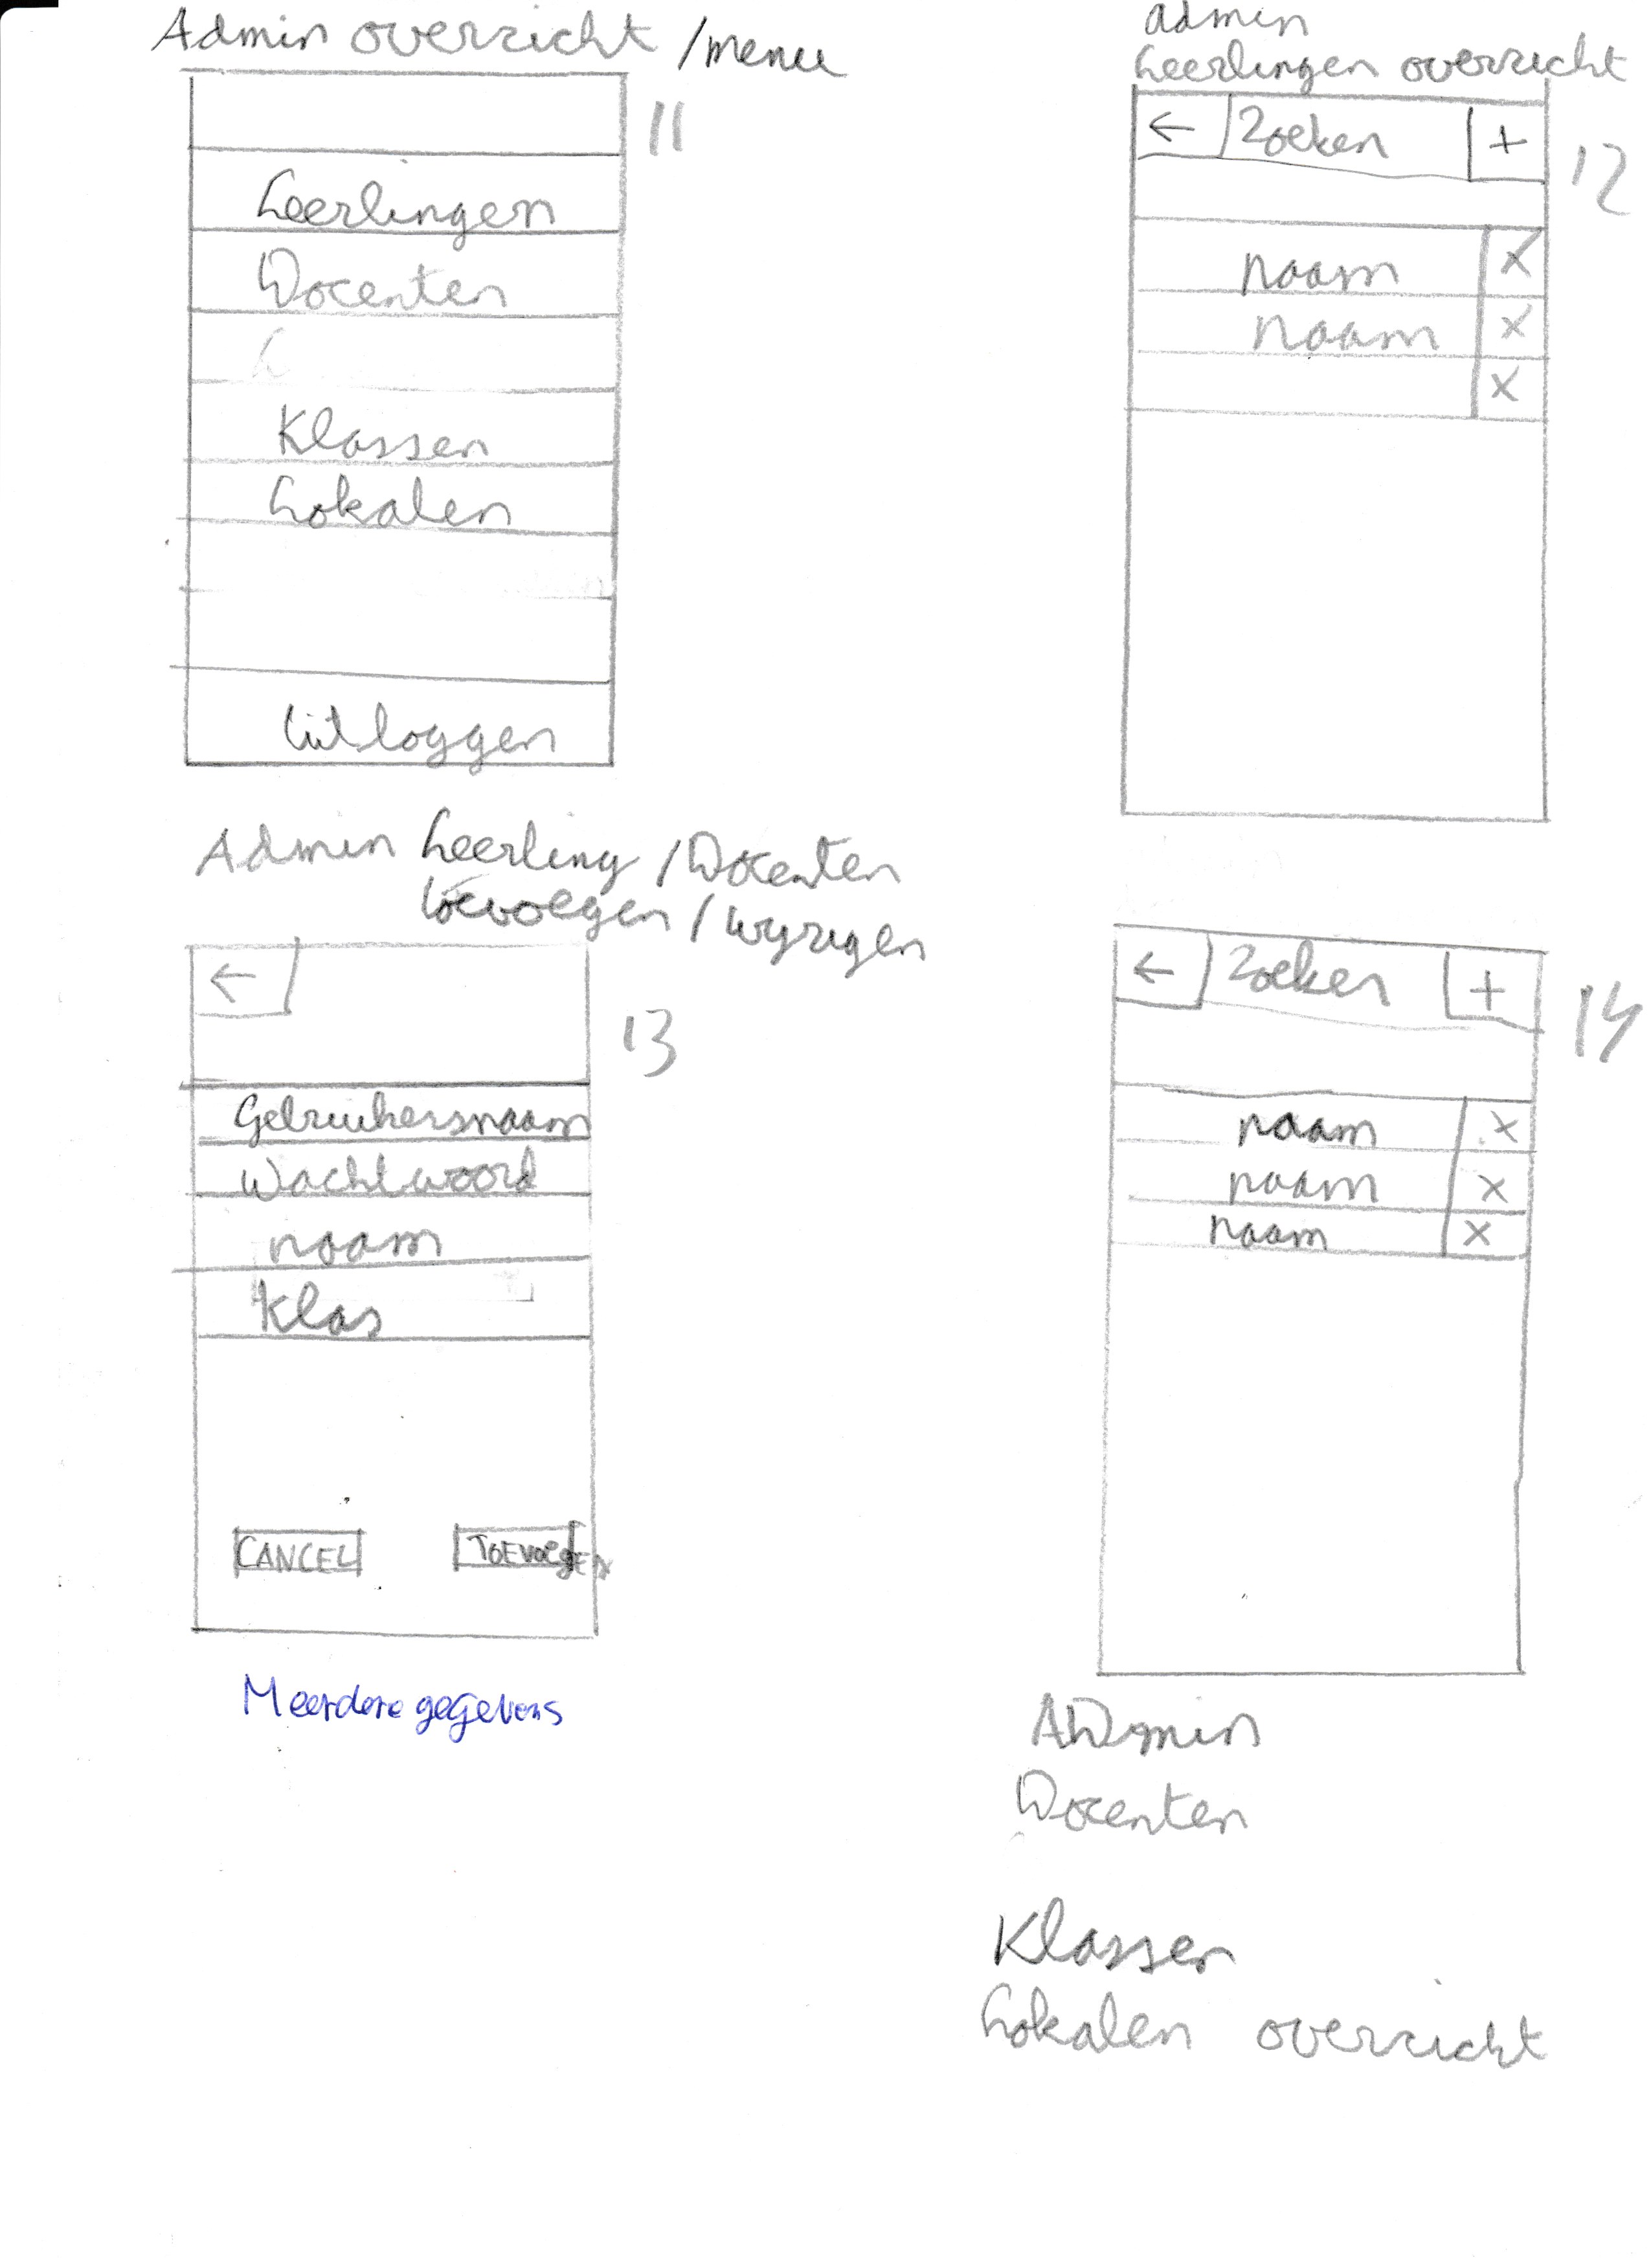 Admin overzicht /menu
11
Leerlingen
Docenten
Klassen
Lokalen
Uitloggen
admin
Leerlingen overzicht
← Zoeken +
12
naam X
naam X
X
Admin Leerling / Docenten
toevoegen / wyzigen
←
13
Gebruikersnaam
Wachtwoord
naam
Klas
CANCEL TOEVOEGEN
Meerdere gegevens
← Zoeken +
14
naam X
naam X
naam X
ADmin
Docenten
Klassen
Lokalen overzicht